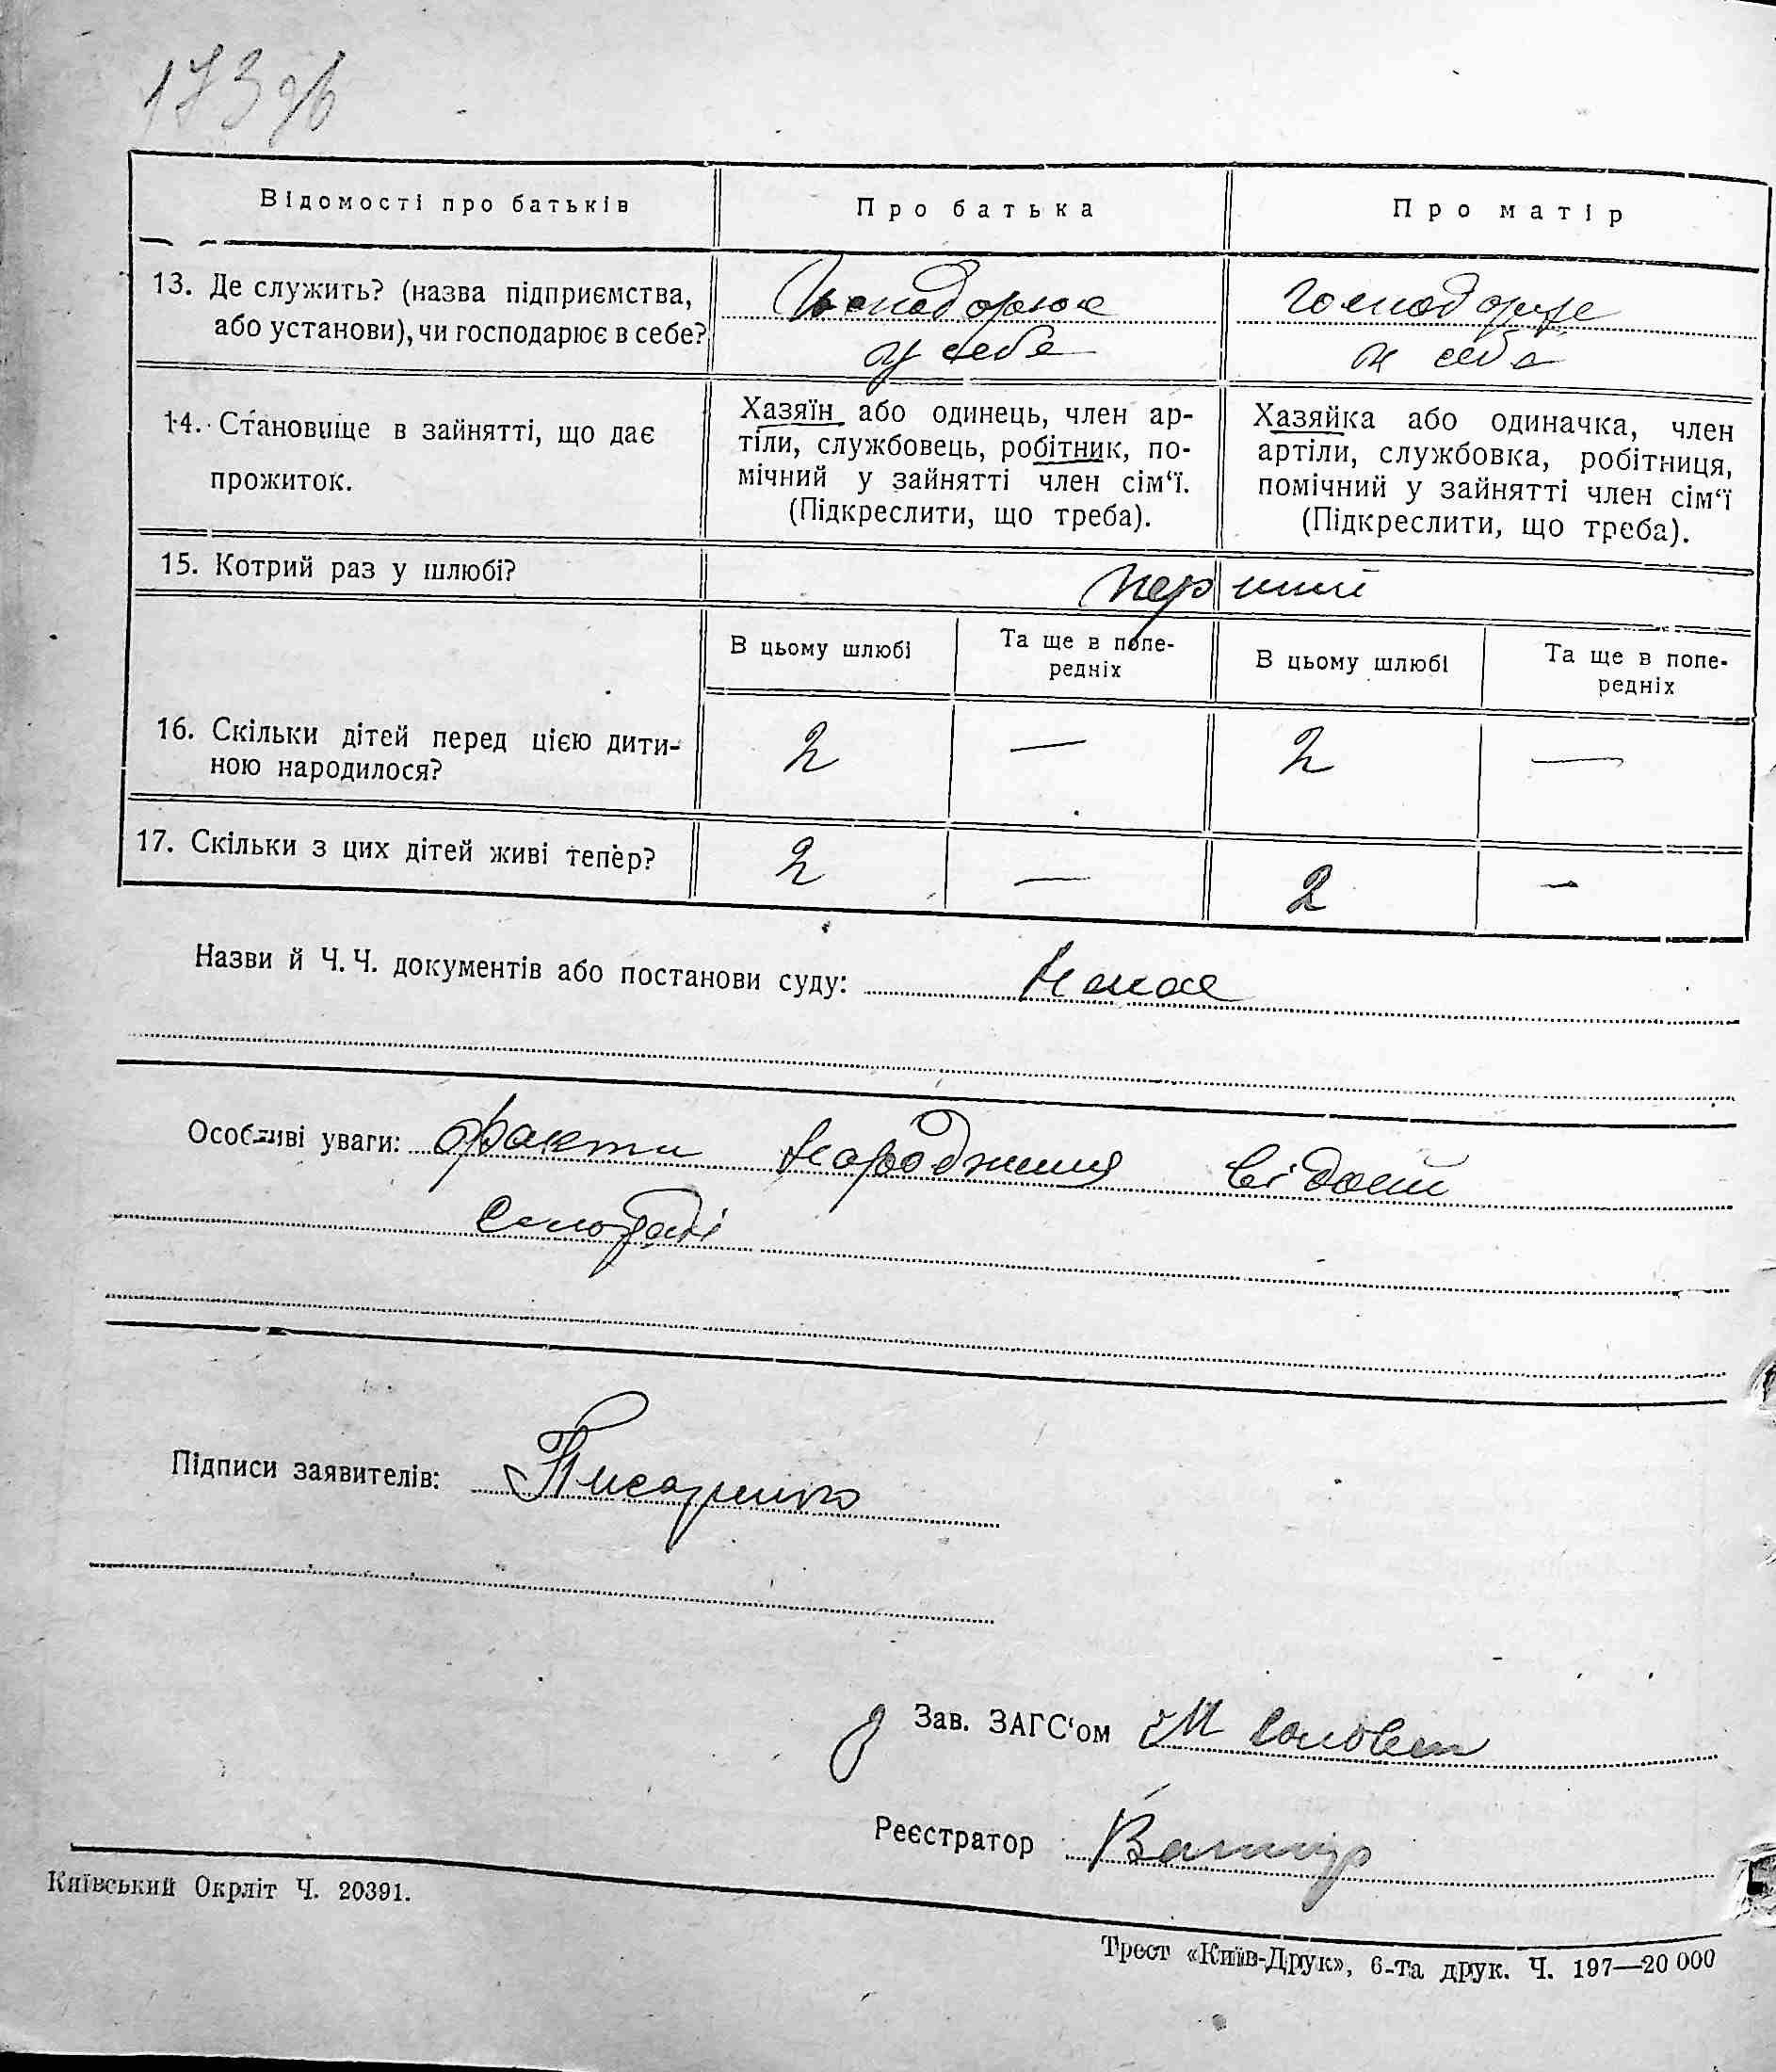 173 зв
Відомості про батьків
Про батька
Про матір
13. Де служить? (назва підприємства,
або установи), чи господарює в себе?
Господорює
у себе
господорує
у себе
14. Становище в зайнятті, що дає
прожиток.
Хазяїн або одинець, член ар-
тіли, службовець, робітник, по-
мічний у зайнятті член сім‘ї.
(Підкреслити, що треба).
Хазяйка або одиначка, член
артіли, службовка, робітниця,
помічний у зайнятті член сім‘ї
(Підкреслити, що треба).
15. Котрий раз у шлюбі?
перший
В цьому шлюбі
Та ще в попе-
редніх
В цьому шлюбі
Та ще в попе-
редніх
16. Скільки дітей перед цією дити-
ною народилося?
2 — 2 —
17. Скільки з цих дітей живі тепер?
2 — 2 —
Назви й Ч. Ч. документів або постанови суду: Немає
Особливі уваги: факти народження відомі
сельраді
Підписи заявителів: Писаренко
Зав. ЗАГС‘ом М
Реєстратор
Київський Окрліт Ч. 20391.
Трест «Київ-Друк», 6-та друк. Ч. 197—20 000